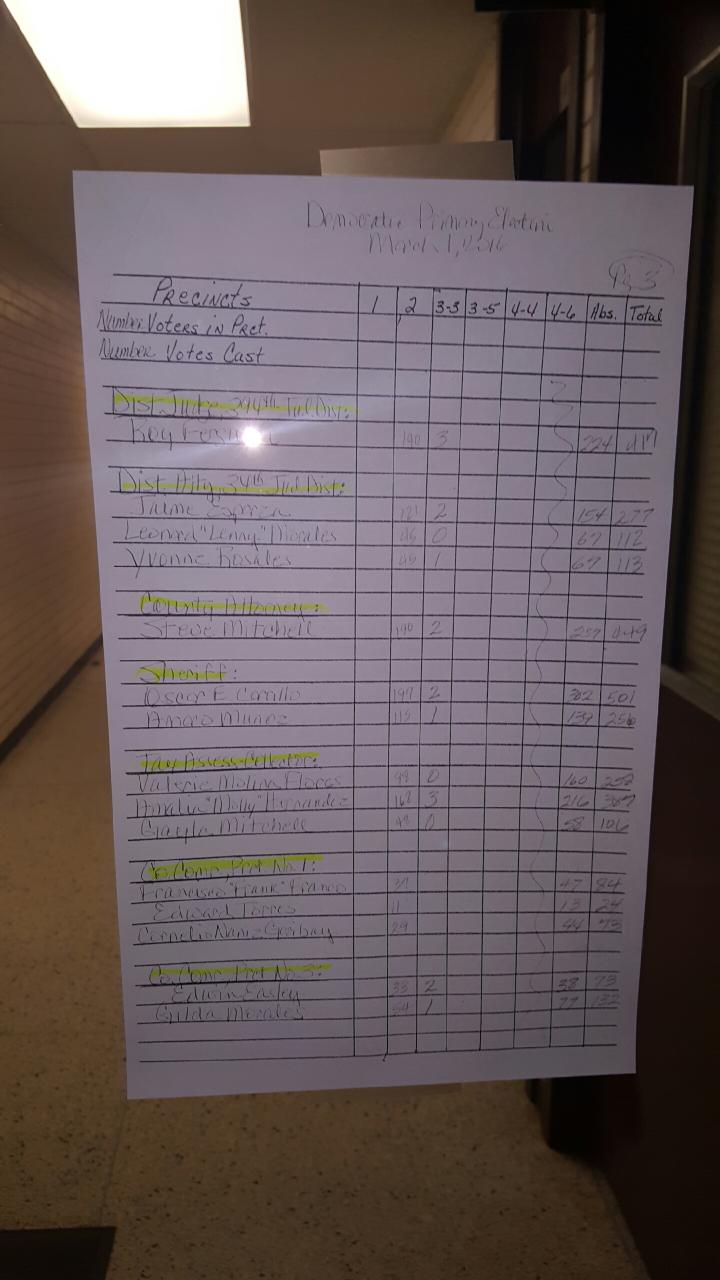 Democratic Primary Election
March 1, 2016
Pg 3
Precincts 1 2 3-3 3-5 4-4 4-6 Abs. Total
Number Voters in Prct.
Number Votes Cast
Dist. Judge, 394th Jud. Dist:
Roy 190 3 224 417
Dist. Atty, 34th Jud Dist:
Jaime Esparza 121 2 154 277
Leonard "Lenny" Morales 45 0 67 112
Yvonne Rosales 45 1 67 113
County Attorney:
Steve Mitchell 190 2 257 449
Sheriff:
Oscar E. Carrillo 197 2 302 501
Amaro Munoz 115 1 139 256
Tax Assess-Collector:
Valerie Molina Flores 0 160
Amalia "Molly" Hernandez 168 3 216 387
Gayla Mitchell 48 0 58 106
Co. Comm, Prct No. 1:
Francisco "Frank" Franco 37 47 84
Edward Torres 11 13 24
Cornelio 29 44 73
Co. Comm, Prct No. 3:
Edwin Easley 33 2 38 73
Gilda Morales 54 1 77 132